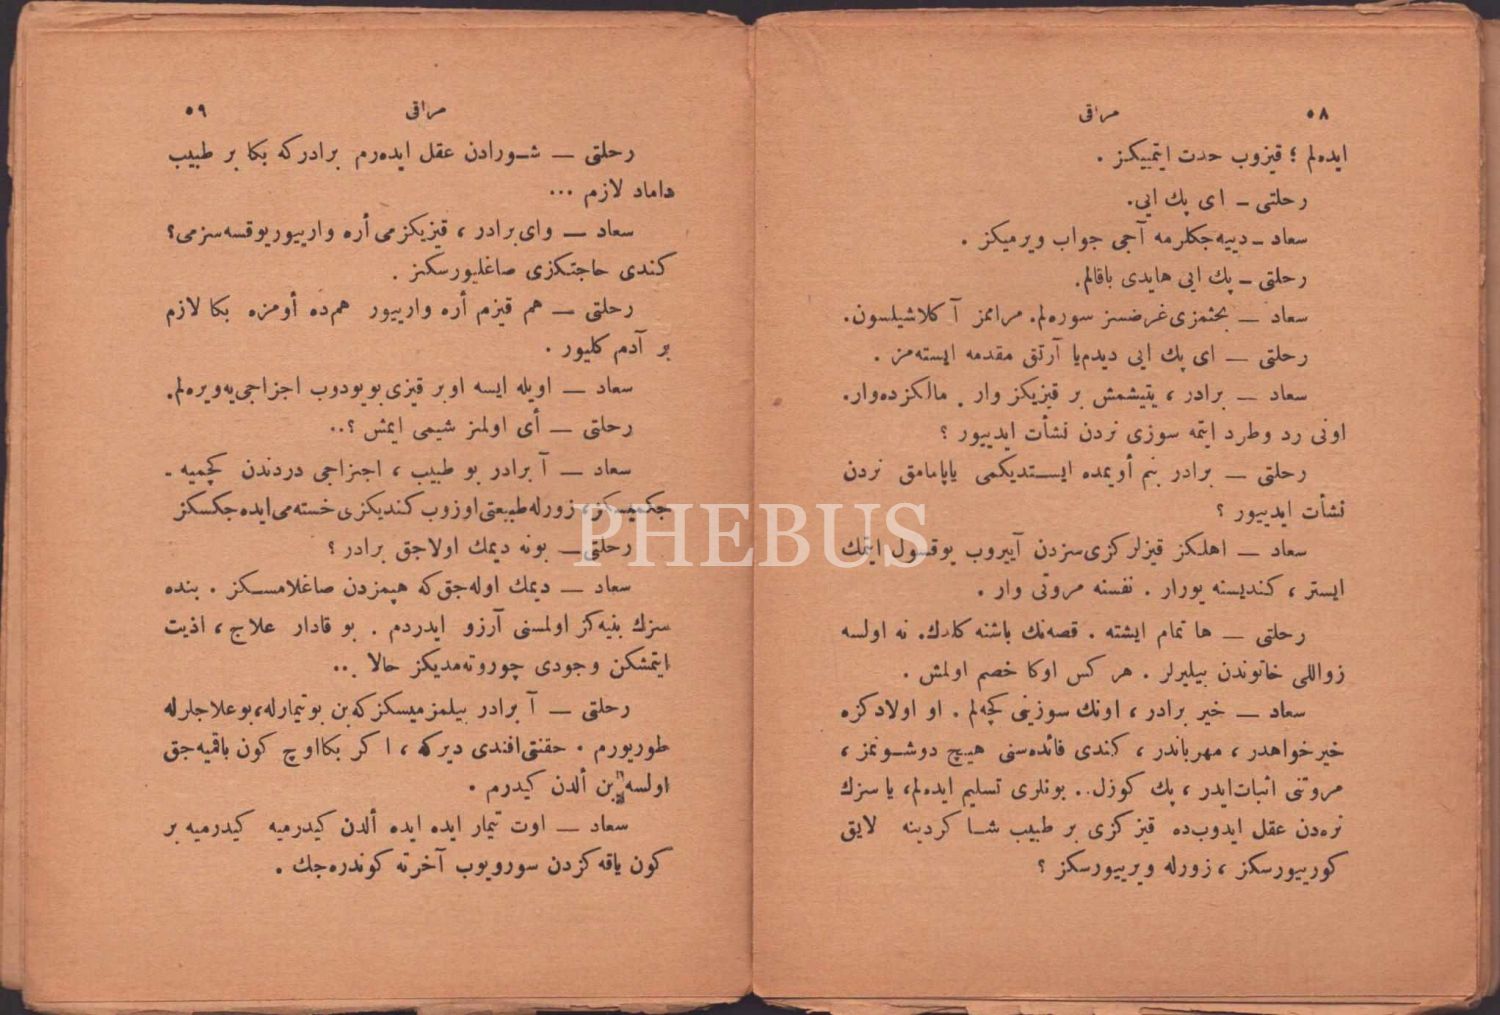 ٥٨
مراقی
ایده‌لم ؛ قیزوب حدت ایتمییکز .
رحلتی ـ ای پك ایی.
سعاد ـ دییه‌جکلرمه آجی جواب ویرمیکز .
رحلتی ـ پك ایی هایدی باقالم.
سعاد — بحثمزی غرضسز سوره‌لم. مرامز آ کلاشیلسون.
رحلتی — ای پك ایی دیدم‌یا آرتق مقدمه ایسته‌مز .
سعاد — برادر ، یتیشمش بر قیزیکز وار . مالکزده‌وار.
اونی رد وطرد ایتمه سوزی نردن نشأت ایدییور ؟
رحلتی — برادر بنم أویمده ایستدیکمی یاپامامق نردن
نشأت ایدییور ؟
سعاد — اهلکز قیزلرکزی‌سزدن آییروب یوقسول ایتمك
ایستر ، کندیسنه یورار . نفسنه مروتی وار .
رحلتی — ها تمام ایشته . قصه‌نك باشنه کلدك. نه اولسه
زواللی خاتوندن بیلیرلر . هر کس اوکا خصم اولمش .
سعاد — خیر برادر ، اونك سوزینی کچه‌لم . او اولادکزه
خیرخواهدر ، مهرباندر ، کندی فائده‌سنی هیچ دوشونمز ،
مروتنی اثبات‌ایدر ، پك کوزل.. بونلری تسلیم ایده‌لم، یا سزك
نره‌دن عقل ایدوب‌ده قیزکزی بر طبیب شا کردینه لایق
کورییورسکز ، زورله ویرییورسکز ؟
٥٩
مراقی
رحلتی — شورادن عقل ایده‌رم برادرکه بکا بر طبیب
داماد لازم ...
سعاد — وای‌برادر ، قیزیکزمی أره وارییوریوقسه‌سزمی؟
کندی حاجتکزی صاغلیورسکز .
رحلتی — هم قیزم أره وارییور هم‌ده أومزه بکا لازم
بر آدم کلیور .
سعاد — اویله ایسه اوبر قیزی‌بویودوب اجزاجی‌یه‌ویره‌لم.
رحلتی — أی اولمز شیمی ایمش ؟..
سعاد — آ برادر بو طبیب ، اجزاجی دردندن کچمیه ـ
جکمیسکز، زورله‌طبیعتی‌اوزوب کندیکزی خسته‌می‌ایده‌جکسکز
رحلتی— بونه دیمك اولاجق برادر ؟
سعاد — دیمك اوله‌جق‌که هپمزدن صاغلامسکز . بنده
سزك بنیه‌کز اولمسنی آرزو ایدردم . بو قادار علاج ، اذیت
ایتمشکن وجودی چوروته‌مدیکز حالا ..
رحلتی — آ برادر بیلمزمیسکزکه‌بن بوتیمارله،بوعلاجلرله
طوریورم . حقنتی‌افندی دیرکه ، ا کر بکااوچ کون باقمیه‌جق
اولسه بن ألدن کیدرم .
سعاد — اوت تیمار ایده ایده ألدن کیدرمیه کیدرمیه بر
کون یاقه‌کزدن سورویوب آخرته کوندره‌جك .
PHEBUS